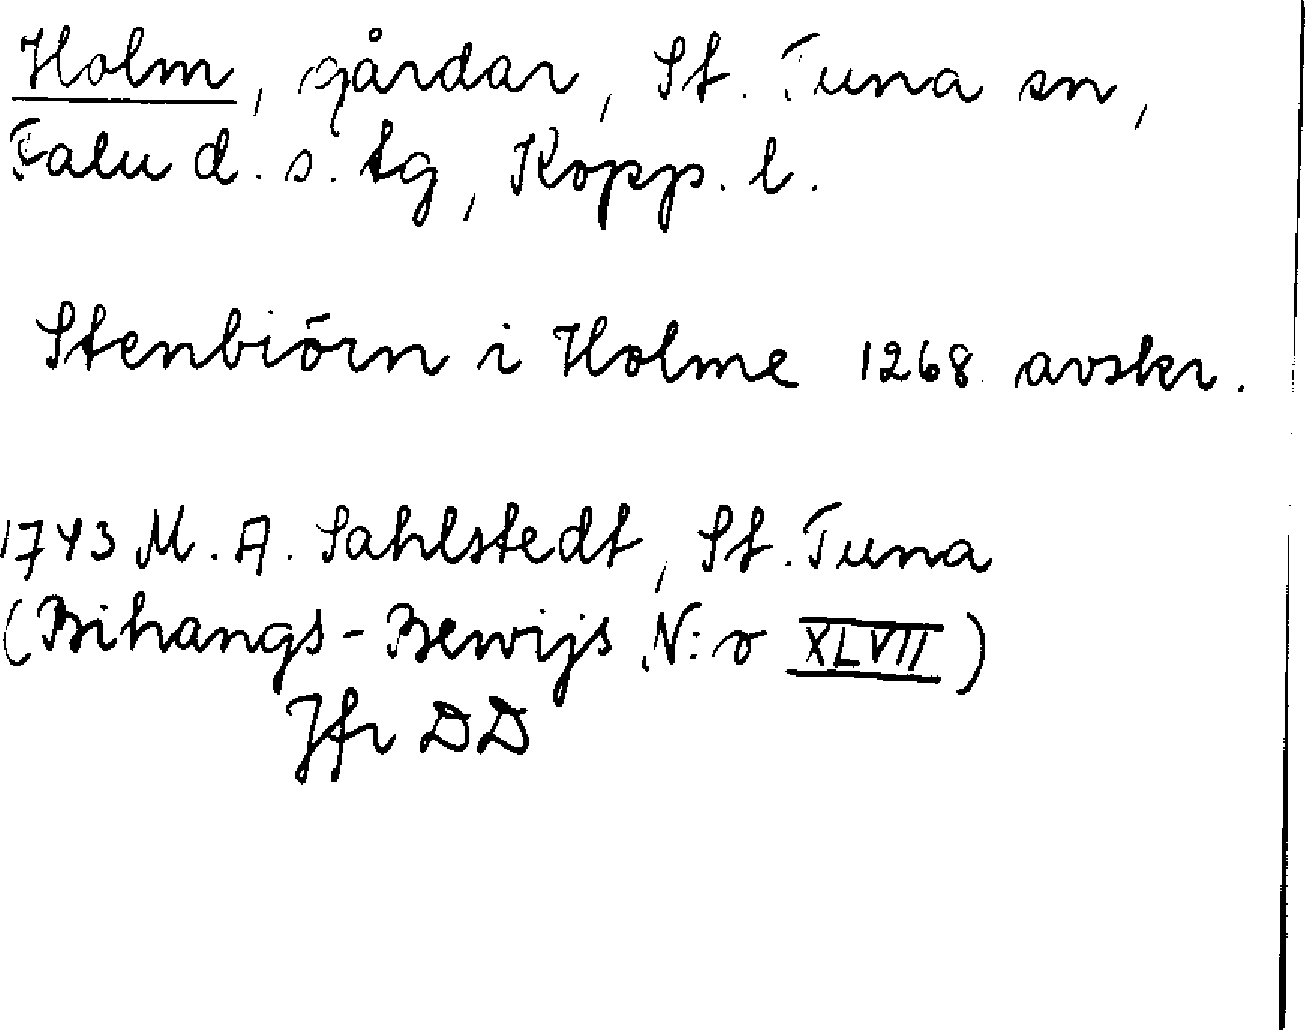 Holm, gårdar, St. Tuna sn,
Falu d. s. tg, Kopp. l.
Stenbiörn i Holme 1268 avskr.
1743 M. A. Sahlstedt, St. Tuna
(Bihangs-Bewijs N:o XLVII)
Jfr DD